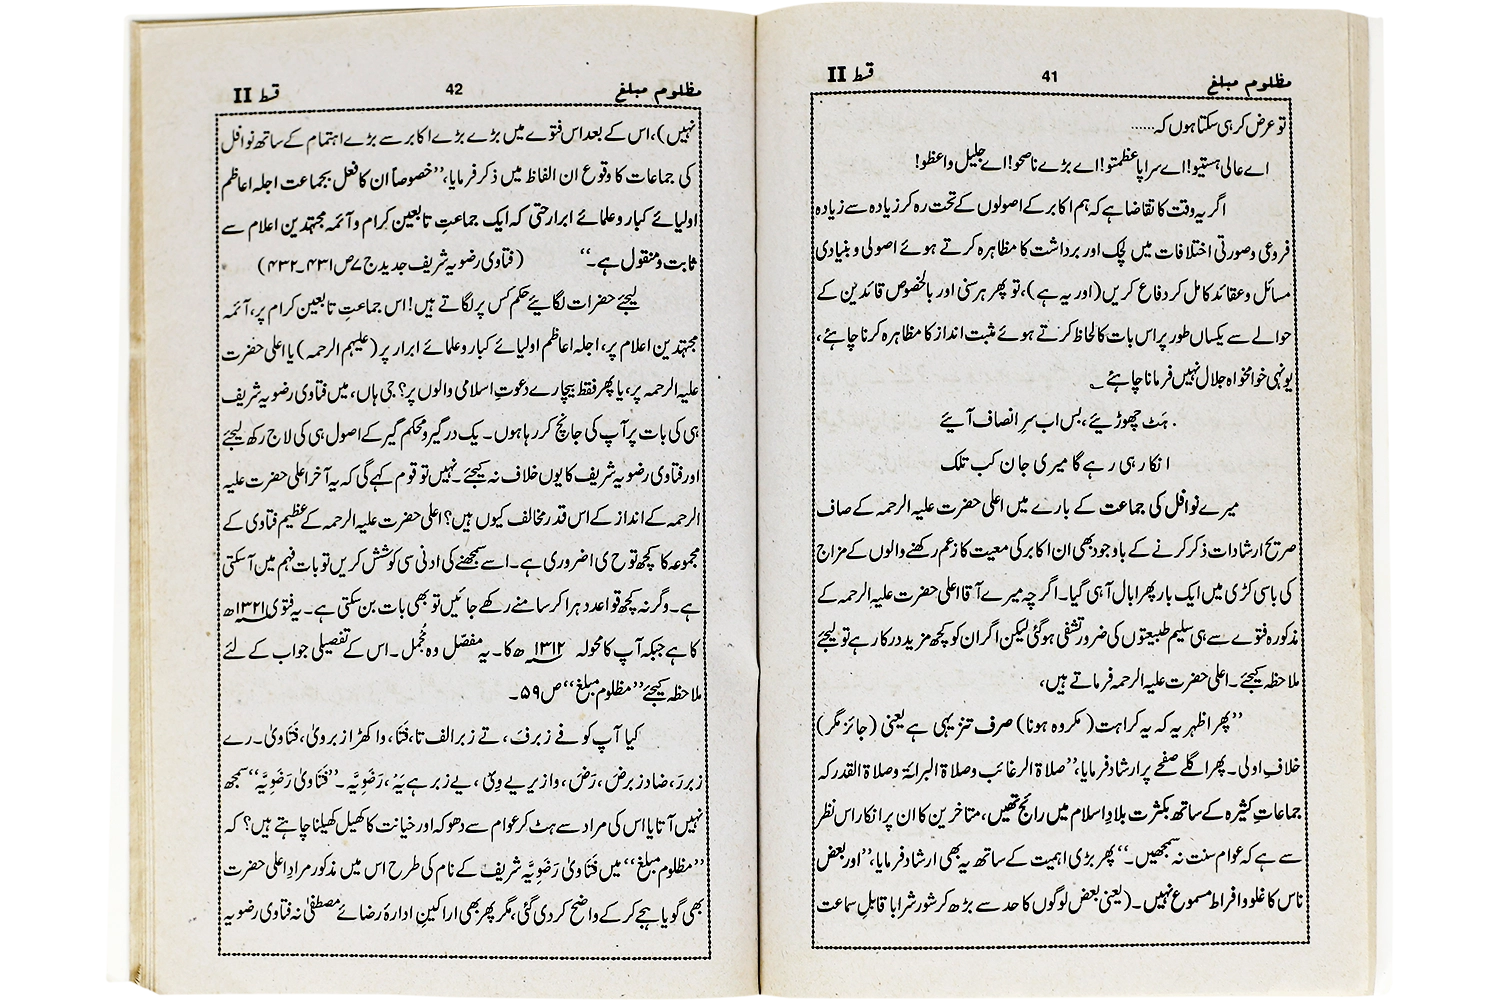 مظلوم مبلغ 41 قسط II
تو عرض کر ہی سکتا ہوں کہ......
اے عالی ہستیو! اے سراپا عظمتو! اے بڑے ناصحو! اے جلیل واعظو!
اگر یہ وقت کا تقاضا ہے کہ ہم اکابر کے اصولوں کے تحت رہ کر زیادہ سے زیادہ
فروعی و صورتی اختلافات میں لچک اور برداشت کا مظاہرہ کرتے ہوئے اصولی و بنیادی
مسائل و عقائد کا مل کر دفاع کریں (اور یہ ہے)، تو پھر ہر سنی اور بالخصوص قائدین کے
حوالے سے یکساں طور پر اس بات کا لحاظ کرتے ہوئے مثبت انداز کا مظاہرہ کرنا چاہئے،
یونہی خوامخواہ جلال نہیں فرمانا چاہئے۔
ہٹ چھوڑیئے، بس اب سرِ انصاف آئیے
انکار ہی رہے گا میری جان کب تلک
میرے نوافل کی جماعت کے بارے میں اعلیٰ حضرت علیہ الرحمہ کے صاف
صریح ارشادات ذکر کرنے کے باوجود بھی ان اکابر کی معیت کا زعم رکھنے والوں کے مزاج
کی باسی کڑی میں ایک بار پھر ابال آ ہی گیا۔ اگرچہ میرے آقا اعلیٰ حضرت علیہ الرحمہ کے
مذکورہ فتوے سے ہی سلیم طبیعتوں کی ضرور تشفی ہوگئی لیکن اگر ان کو کچھ مزید درکار ہے تو لیجئے
ملاحظہ کیجئے۔ اعلیٰ حضرت علیہ الرحمہ فرماتے ہیں،
’’پھر اظہر یہ کہ یہ کراہت (مکروہ ہونا) صرف تنزیہی ہے یعنی (جائز مگر)
خلافِ اولی۔ پھر اگلے صفحے پر ارشاد فرمایا، ’’صلاۃ الرغائب وصلاۃ البرائۃ وصلاۃ القدر کہ
جماعاتِ کثیرہ کے ساتھ بکثرت بلادِ اسلام میں رائج تھیں، متاخرین کا ان پر انکار اس نظر
سے ہے کہ عوام سنت نہ سمجھیں۔‘‘ پھر بڑی اہمیت کے ساتھ یہ بھی ارشاد فرمایا، ’’اور بعض
ناس کا غلو و افراط مسموع نہیں۔ (یعنی بعض لوگوں کا حد سے بڑھ کر شور شرابا قابلِ سماعت
مظلوم مبلغ 42 قسط II
نہیں)، اس کے بعد اس فتوے میں بڑے بڑے اکابر سے بڑے اہتمام کے ساتھ نوافل
کی جماعات کا وقوع ان الفاظ میں ذکر فرمایا، ’’خصوصاً ان کا فعل بجماعت اجلہ اعاظم
اولیائے کبار و علمائے ابرار حتی کہ ایک جماعتِ تابعین کرام و آئمہ مجتہدین اعلام سے
ثابت و منقول ہے۔‘‘ (فتاویٰ رضویہ شریف جدید ج ۷ ص ۴۳۱۔۴۳۲)
لیجئے حضرات لگائیے حکم کس پر لگاتے ہیں! اس جماعتِ تابعین کرام پر، آئمہ
مجتہدین اعلام پر، اجلہ اعاظم اولیائے کبار و علمائے ابرار پر (علیہم الرحمہ) یا اعلیٰ حضرت
علیہ الرحمہ پر، یا پھر فقط بیچارے دعوتِ اسلامی والوں پر؟ جی ہاں، میں فتاویٰ رضویہ شریف
ہی کی بات پر آپ کی جانچ کر رہا ہوں۔ یک در گیر و محکم گیر کے اصول ہی کی لاج رکھ لیجئے
اور فتاویٰ رضویہ شریف کا یوں خلاف نہ کیجئے۔ نہیں تو قوم کہے گی کہ یہ آخر اعلیٰ حضرت علیہ
الرحمہ کے انداز کے اس قدر مخالف کیوں ہیں؟ اعلیٰ حضرت علیہ الرحمہ کے عظیم فتاوی کے
مجموعہ کا کچھ تو حی اضروری ہے۔ اسے سمجھنے کی ادنیٰ سی کوشش کریں تو بات فہم میں آ سکتی
ہے۔ وگرنہ کچھ قواعد دہرا کر سامنے رکھے جائیں تو بھی بات بن سکتی ہے۔ یہ فتویٰ ۱۳۲۱ھ
کا ہے جبکہ آپ کا محولہ ۱۳۱۲ھ کا۔ یہ مفصّل وہ مُجمل۔ اس کے تفصیلی جواب کے لئے
ملاحظہ کیجئے ’’مظلوم مبلغ‘‘ ص ۵۹۔
کیا آپ کو فے زبر فَ، تے زبر الف تا، فَتا، وا کھڑا زبر ویٰ، فَتاویٰ۔ رے
زبر رَ، ضاد زبر ضَ، رَضَ، وا زیر یے وِیّ، یے زبر ہے یَہ، رَضَوِیَّہ۔ ’’فَتَاویٰ رَضَوِیَّہ‘‘ سمجھ
نہیں آتا یا اس کی مراد سے ہٹ کر عوام سے دھوکہ اور خیانت کا کھیل کھیلنا چاہتے ہیں؟ کہ
’’مظلوم مبلغ‘‘ میں فَتَاویٰ رَضَوِیَّہ شریف کے نام کی طرح اس میں مذکور مرادِ اعلیٰ حضرت
بھی گویا ہجے کر کے واضح کر دی گئی، مگر پھر بھی اراکینِ ادارۂ رضائے مصطفیٰ نہ فتاویٰ رضویہ